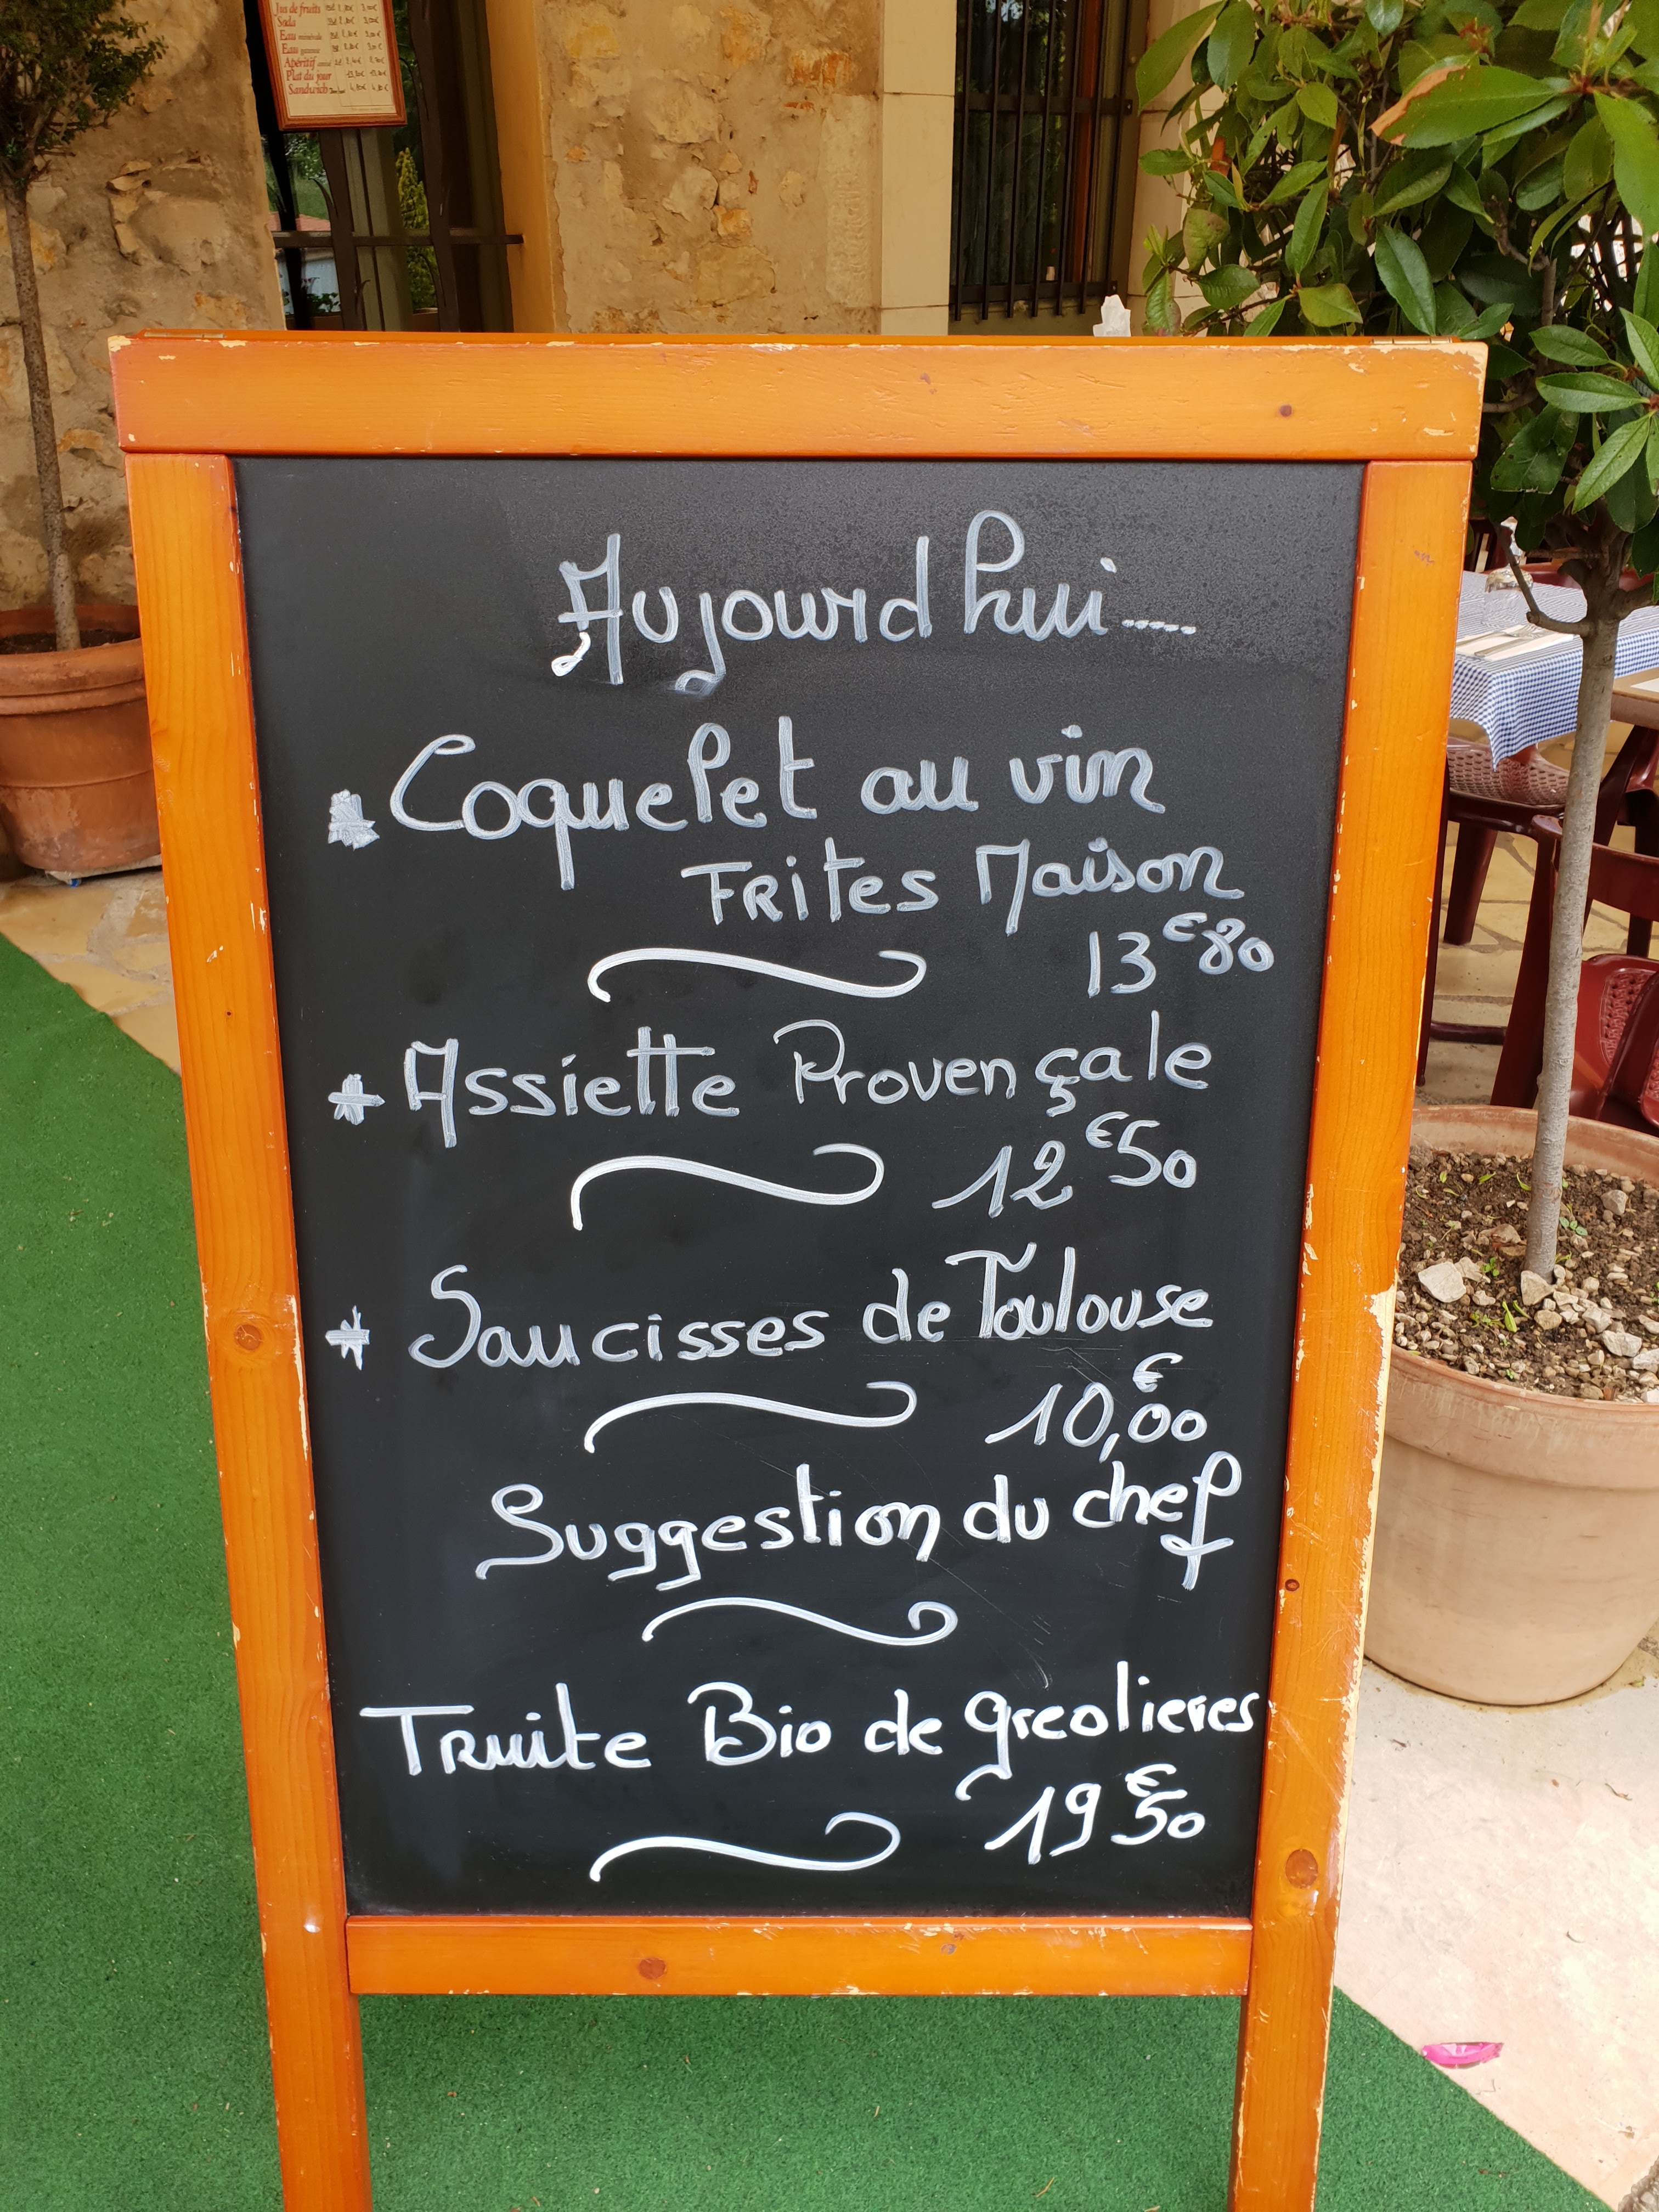 Jus de fruits
Soda
Eau minérale
Eau gazeuse
Apéritif
Plat du jour
Sandwich
Aujourd hui.....
* Coquelet au vin
FRites Maison
13 €80
* Assiette Provençale
12 €50
* Saucisses de Toulouse
10,00 €
Suggestion du chef
TRuite Bio de greolieres
19 €50